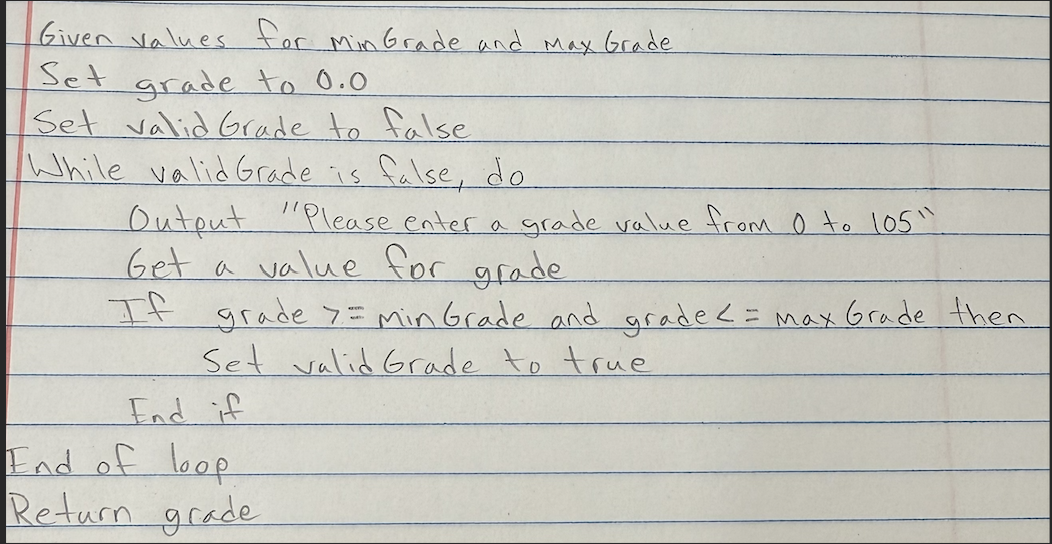 Given values for minGrade and maxGrade
Set grade to 0.0
Set validGrade to false
While validGrade is false, do
Output "Please enter a grade value from 0 to 105"
Get a value for grade
If grade >= minGrade and grade <= maxGrade then
Set validGrade to true
End if
End of loop
Return grade